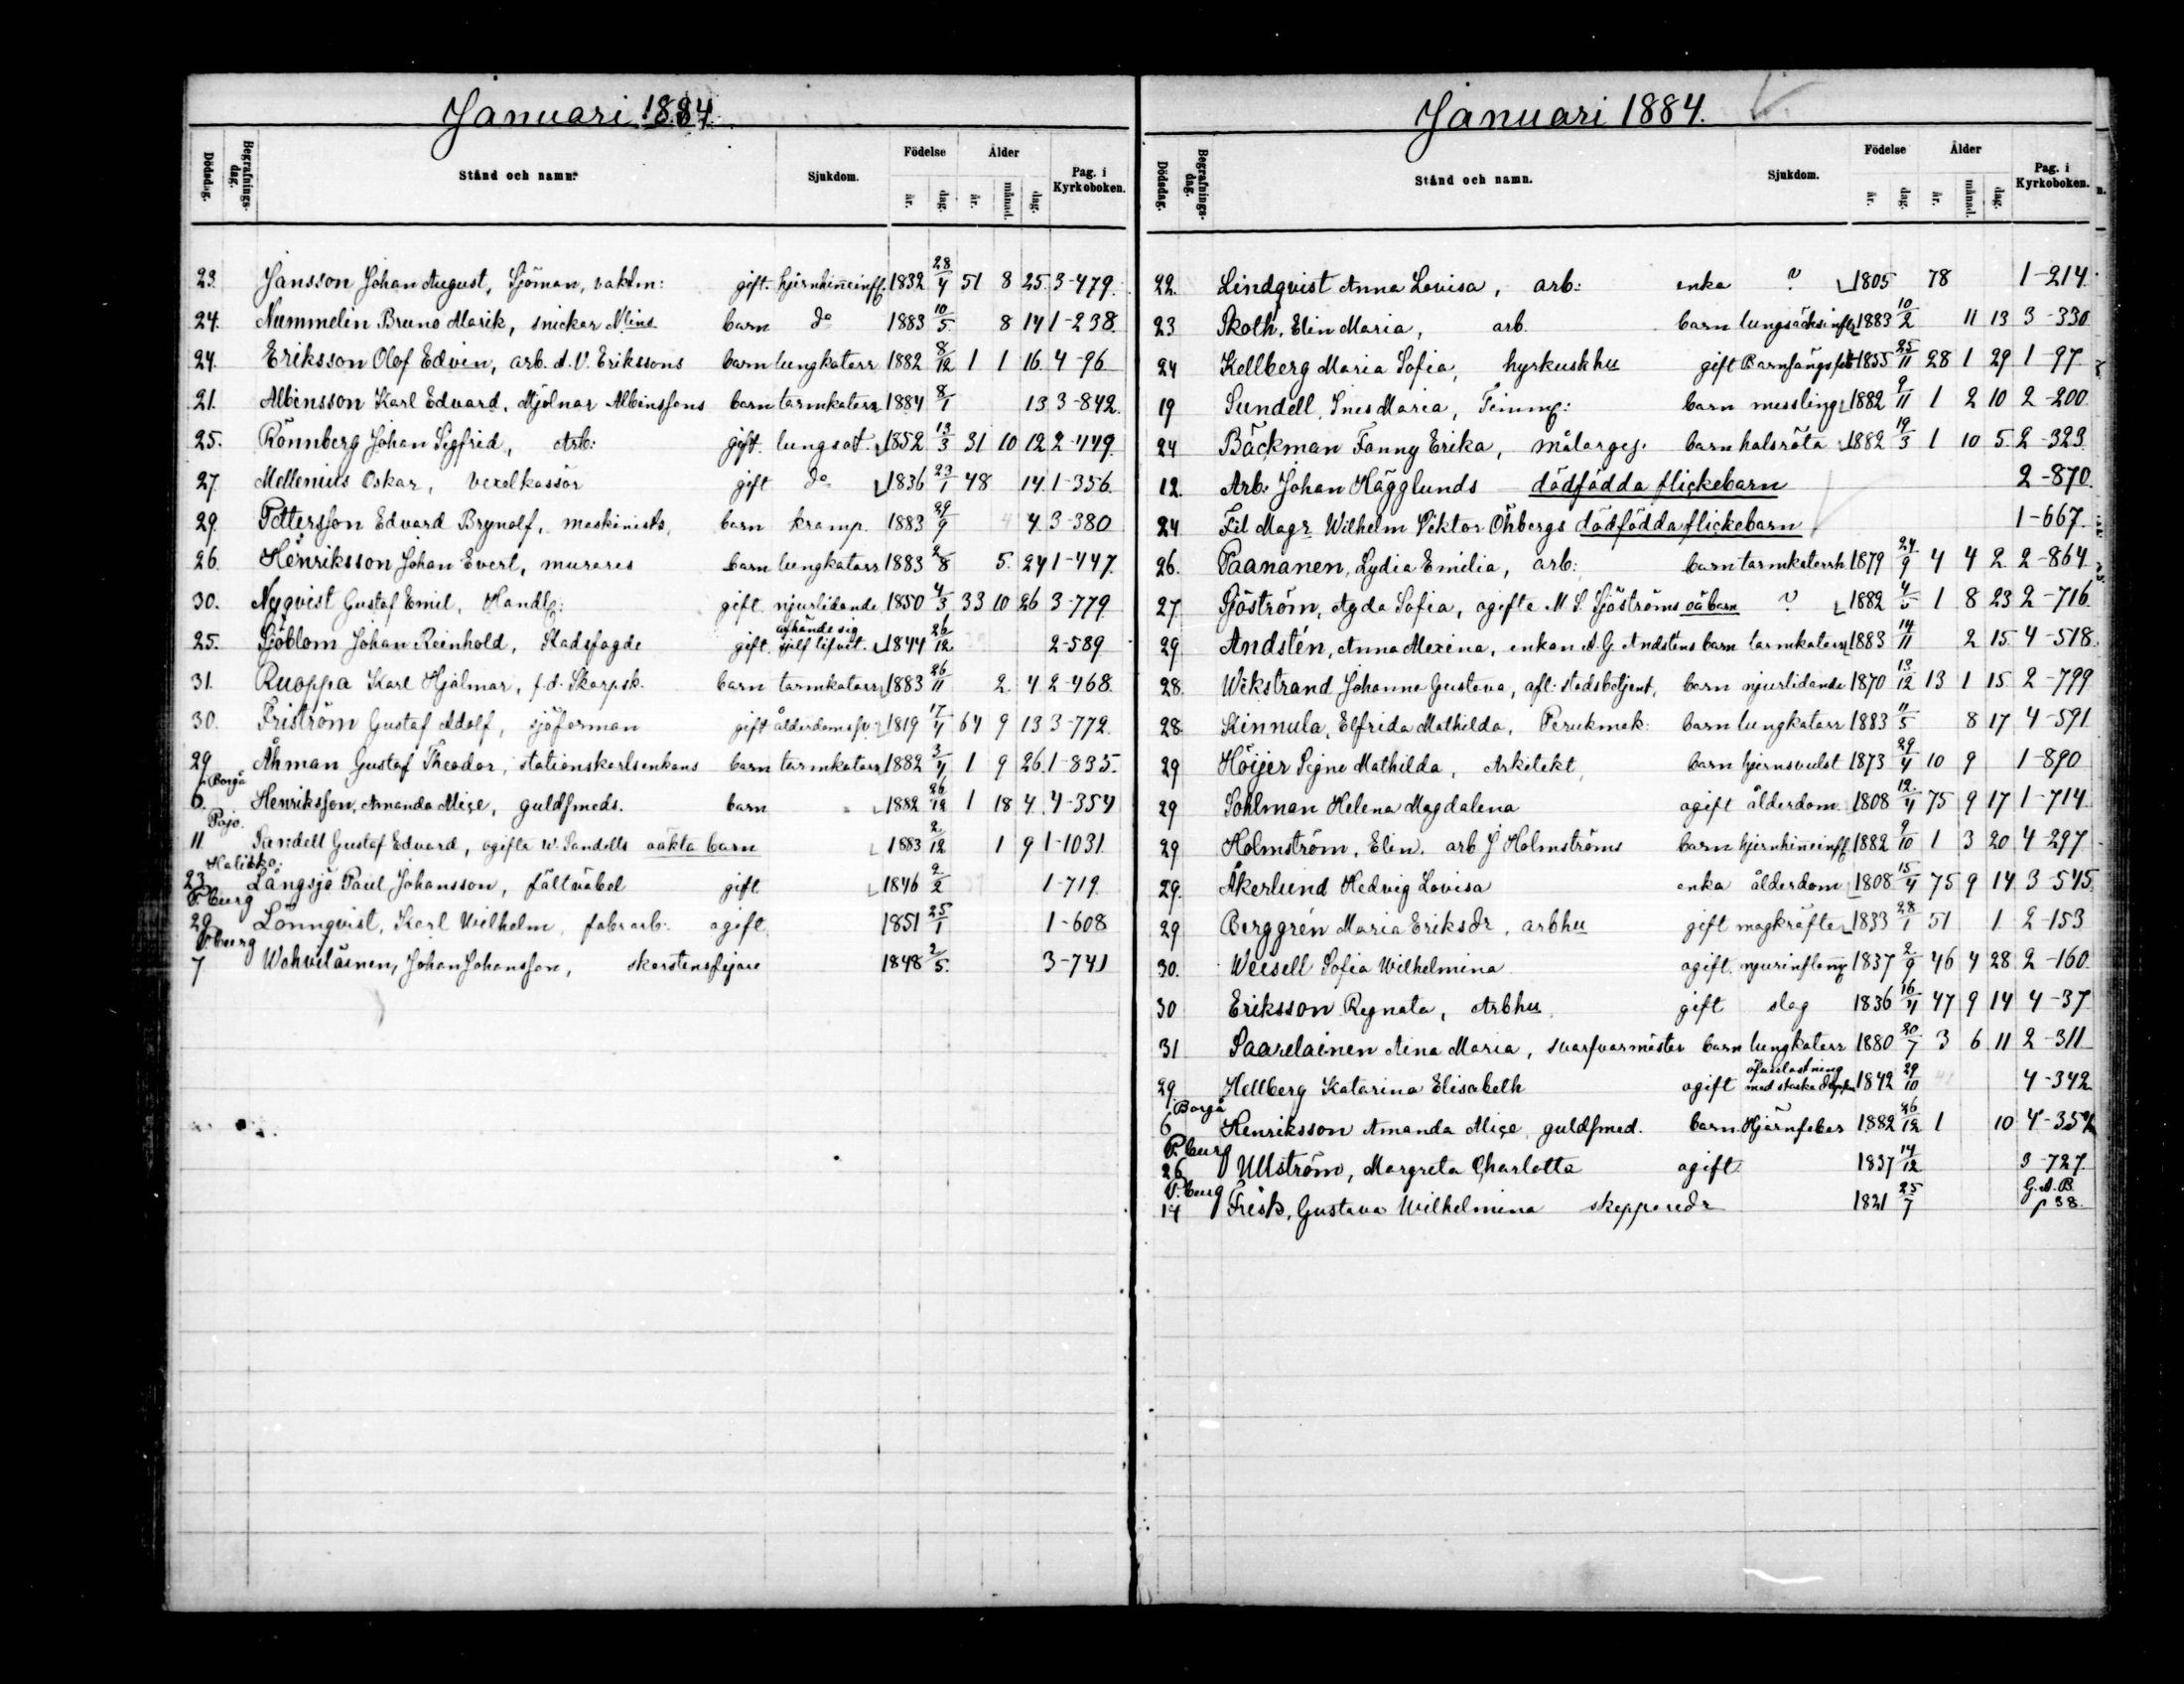 Januari 1884.
Dödsdag. Begrafningsdag. Stånd och namn. Sjukdom. Födelse år. dag. Ålder år. månad. dag. Pag. i Kyrkoboken.
23. Jansson Johan August, Sjöman, vaktm: gift. hjernhinneinfl. 1832 28/4 51 8 25 3-479.
24. Nummelin Bruno Marik, snickar Nlins barn do 1883 10/5 8 14 1-238.
24. Eriksson Olof Edvin, arb. A. V. Erikssons barn lungkatarr 1882 8/12 1 1 16 4-96
21. Albinsson Karl Edvard, Mjölnar Albinssons barn tarmkatarr 1884 8/1 13 3-842.
25. Rönnberg Johan Sigfrid, Arb: gift. lungsot. 1852 13/3 31 10 12 2-449.
27 Mellenius Oskar, Vexelkassör gift do 1836 23/1 48 14 1-356.
29. Pettersson Edvard Brynolf, maskinists, barn kramp. 1883 29/9 4 4 3-380
26. Henriksson Johan Evert, murares barn lungkatarr 1883 2/8 5. 24 1-447.
30. Nyqvist Gustaf Emil, Handl: gift njurlidande 1850 4/3 33 10 26 3-779.
25. Sjöblom Johan Reinhold, Stadsfogde gift. afhände sig sjelf lifvet. 1844 26/12 2-589
31. Ruoppa Karl Hjalmar, f.d. Skarpsk. barn tarmkatarr 1883 26/11 2. 4 2-468.
30. Friström Gustaf Adolf, sjöforman gift ålderdomssv. 1819 17/4 64 9 13 3-772.
29 Åhman Gustaf Theodor, stationskarlsenkans barn tarmkatarr 1882 3/4 1 9 26. 1-835.
i Borgå
6. Henriksson, Amanda Alice, guldsmeds. barn 1882 26/12 1 18 4. 4-354
Pojo.
11 Sandell Gustaf Edvard, ogifta W. Sandells oäkta barn 1883 2/12 1 9 1-1031.
Halikko.
23 Långsjö Paul Johansson, fältväbel gift 1846 2/2 1-719.
P.burg
29 Lönnqvist, Karl Wilhelm, fabrarb. ogift 1851 25/1 1-608
P.burg
7 Wohviläinen, Johan Johansson, skorstensfejare 1848 2/5. 3-741
Januari 1884.
Dödsdag. Begrafningsdag. Stånd och namn. Sjukdom. Födelse år. dag. Ålder år. månad. dag. Pag. i Kyrkoboken.
22. Lindqvist Anna Lovisa, arb: enka ? 1805 78 1-214.
23 Skoth, Elin Maria, arb. barn lungsäcksinfl. 1883 10/2 11 13 3-330
24 Kellberg Maria Sofia, hyrkuskhu gift Barnsängsfeb 1855 25/11 28 1 29 1-97.
19 Sundell, Ines Maria, Timm: barn messling 1882 9/11 1 2 10 2-200.
24 Bäckman Fanny Erika, målargej. barn halsröta 1882 19/3 1 10 5. 2-323
12. Arb: Johan Hägglunds dödfödda flickebarn 2-870.
24 Fil Magr Wilhelm Viktor Öhbergs dödfödda flickebarn 1-667.
26. Paananen, Lydia Emilia, arb: barn tarmkatarrh 1879 24/9 4 4 2. 2-864.
27. Sjöström, Agda Sofia, ogifta M. S. Sjöströms oä barn ? 1882 4/5 1 8 23 2-716.
29 Andstén, Anna Alexina, enkan A. G. Andstens barn tarmkatarr 1883 14/11 2 15. 4-518.
28. Wikstrand Johanna Gustava, afl. stadsbetjent, barn njurlidande 1870 13/12 13 1 15 2-799
28. Kinnula, Elfrida Mathilda, Perukmak: barn lungkatarr 1883 11/5 8 17 4-591
29 Höijer Signe Mathilda, Arkitekt barn hjernsvulst 1873 29/4 10 9 1-890
29 Sohlman Helena Magdalena ogift ålderdom. 1808 12/4 75 9 17 1-714.
29 Holmström, Elin. arb J Holmströms barn hjernhinneinfl 1882 9/10 1 3 20 4-297
29. Åkerlund Hedvig Lovisa enka ålderdom 1808 15/4 75 9 14 3-545.
29 Berggrén Maria Eriksdr, arbhu gift magkräfta 1833 28/1 51 1 2-153
30. Weisell Sofia Wilhelmina ogift. njurinflamm 1837 2/9 46 4 28 2-160.
30 Eriksson Regnata, Arbhu gift slag 1836 16/4 47 9 14 4-37.
31 Saarelainen Aina Maria, svarfvarmäster barn lungkatarr 1880 20/7 3 6 11 2-311
29. Hellberg Katarina Elisabeth ogift öfverlastning med starka drycker 1842 29/10 4-342
Borgå
6 Henriksson Amanda Alice, guldsmed. barn. Hjärnfeber 1882 26/12 1 10 4-354
P.burg
26 Ullström, Margreta Charlotta ogift 1837 14/12 3-727
P.burg
14 Frisk, Gustava Wilhelmina skepparedr 1821 25/7 G.A.B. p 38.